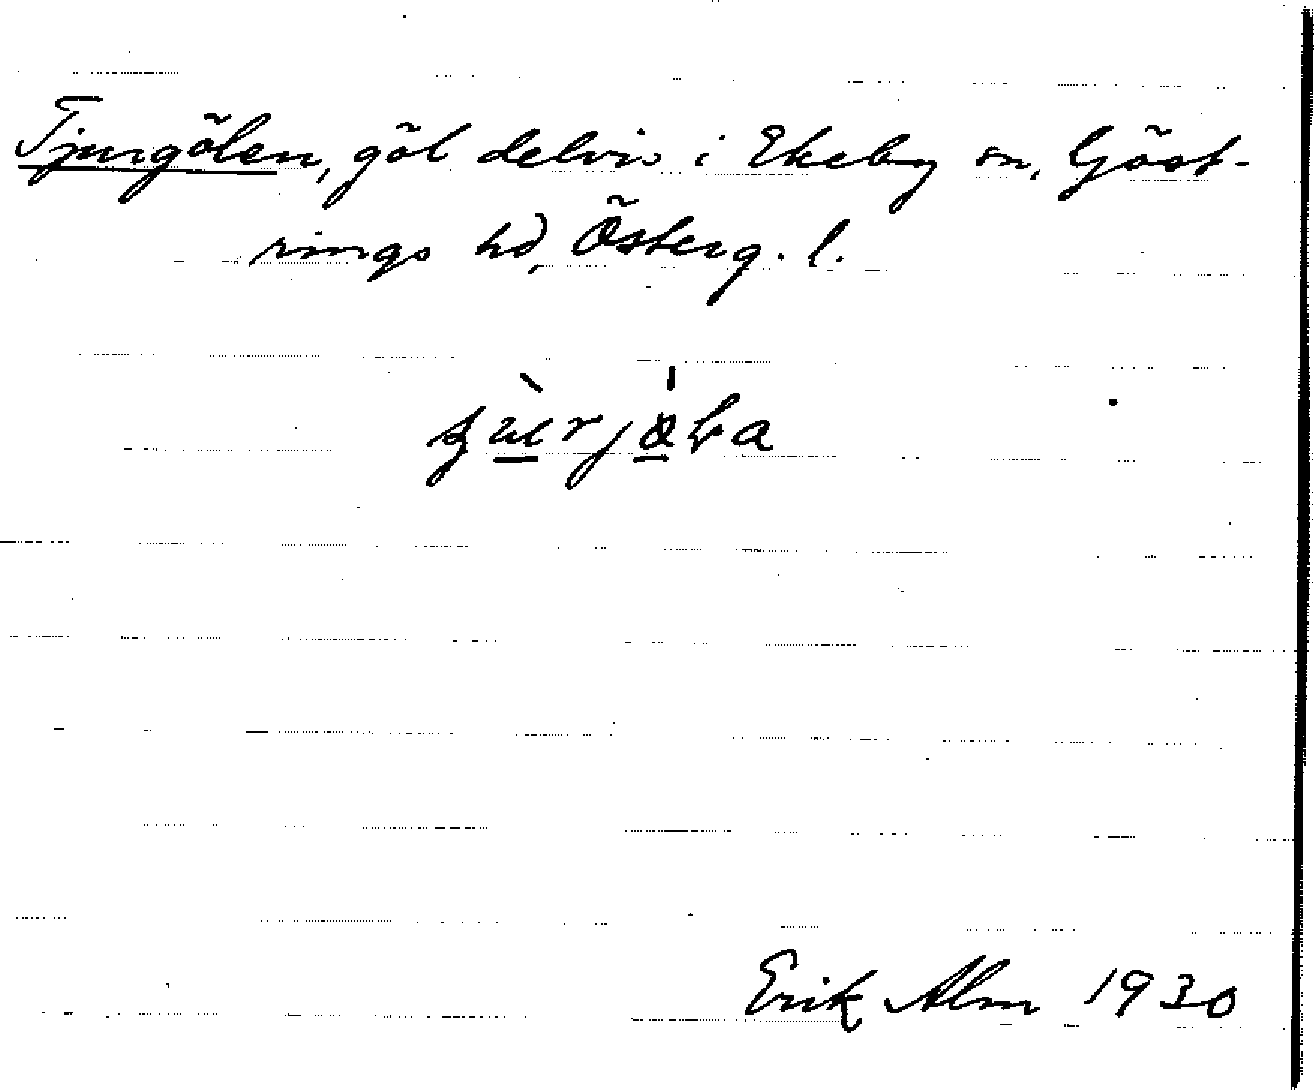 Tjurgölen, göl delvis i Ekeby sn, Göst-
rings hd, Österg. l.
Erik Alm 1930